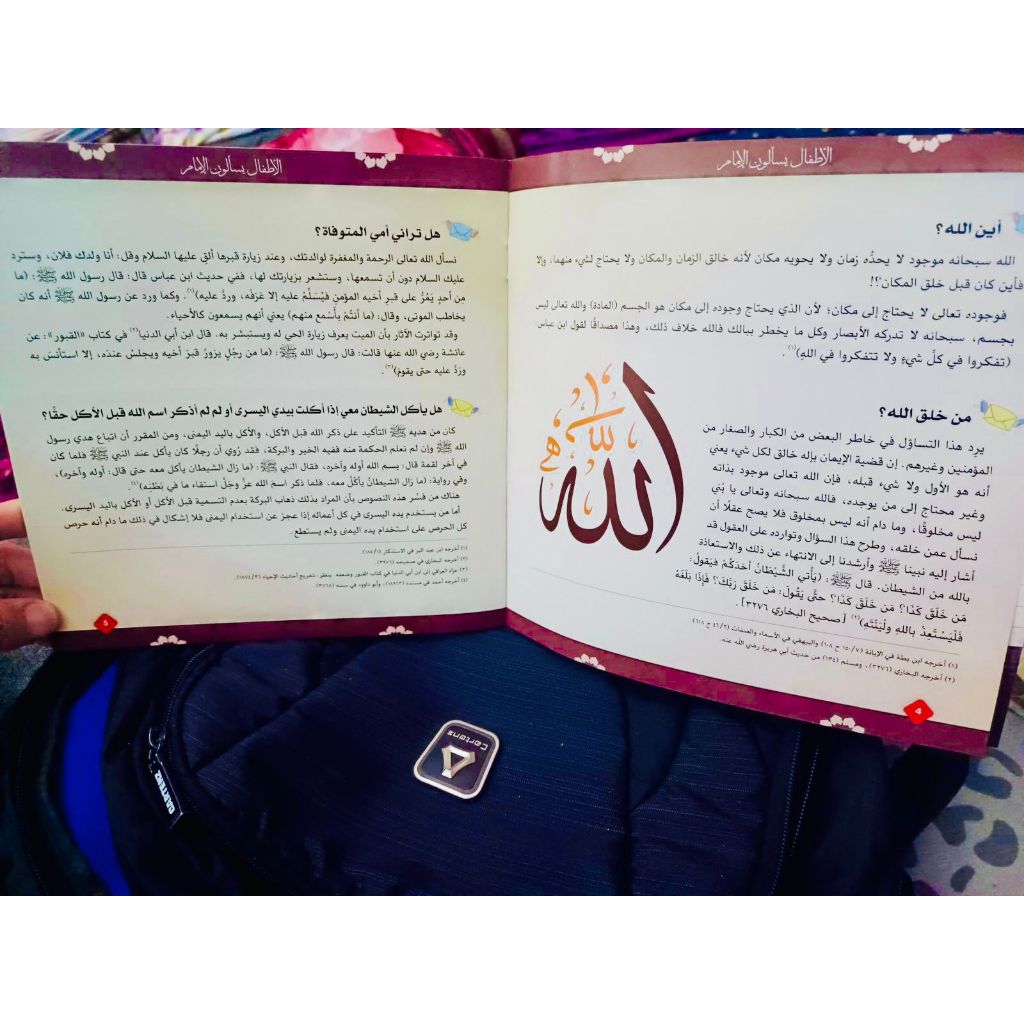 الأطفال يسألون الإمام
أين الله؟
الله سبحانه موجود لا يحدُّه زمان ولا يحويه مكان لأنه خالق الزمان والمكان ولا يحتاج لشيء منهما، وإلا
فأين كان قبل خلق المكان؟!
فوجوده تعالى لا يحتاج إلى مكان؛ لأن الذي يحتاج وجوده إلى مكان هو الجسم (المادة) والله تعالى ليس
بجسم، سبحانه لا تدركه الأبصار وكل ما يخطر ببالك فالله خلاف ذلك، وهذا مصداقًا لقول ابن عباس:
(تفكروا في كلِّ شيءٍ ولا تتفكروا في اللهِ)(١).
من خلق الله؟
يرد هذا التساؤل في خاطر البعض من الكبار والصغار من
المؤمنين وغيرهم. إن قضية الإيمان بإله خالق لكل شيء يعني
أنه هو الأول ولا شيء قبله، فإن الله تعالى موجود بذاته
وغير محتاج إلى من يوجده، فالله سبحانه وتعالى يا بُني
ليس مخلوقًا، وما دام أنه ليس بمخلوق فلا يصح عقلًا أن
نسأل عمن خلقه، وطرح هذا السؤال وتوارده على العقول قد
أشار إليه نبينا ﷺ وأرشدنا إلى الانتهاء عن ذلك والاستعاذة
بالله من الشيطان. قال ﷺ: (يَأْتي الشَّيْطَانُ أحَدَكُمْ فيَقولُ:
مَن خَلَقَ كَذَا؟ مَن خَلَقَ كَذَا؟ حتَّى يَقُولَ: مَن خَلَقَ رَبَّكَ؟ فَإِذَا بَلَغَهُ
فَلْيَسْتَعِذْ باللهِ ولْيَنْتَهِ)(٢) [صحيح البخاري ٣٢٧٦].
الله
(١) أخرجه ابن بطة في الإبانة (٧/ ١٥٠ ح ١٠٨) والبيهقي في الأسماء والصفات (٢/ ٤٦ ح ٦١٨)
(٢) أخرجه البخاري (٣٢٧٦)، ومسلم (١٣٤) من حديث أبي هريرة رضي الله عنه.
4
الأطفال يسألون الإمام
هل تراني أمي المتوفاة؟
نسأل الله تعالى الرحمة والمغفرة لوالدتك، وعند زيارة قبرها ألق عليها السلام وقل: أنا ولدك فلان، وسترد
عليك السلام دون أن تسمعها، وستشعر بزيارتك لها، ففي حديث ابن عباس قال: قال رسول الله ﷺ: (ما
مِن أحدٍ يَمُرُّ على قبرِ أخيه المؤمنِ فيُسَلِّمُ عليه إلا عَرَفَه، وردَّ عليه)(١). وكما ورد عن رسول الله ﷺ أنه كان
يخاطب الموتى، وقال: (ما أنتُمْ بِأَسْمع منهم) يعني أنهم يسمعون كالأحياء.
وقد تواترت الآثار بأن الميت يعرف زيارة الحي له ويستبشر به. قال ابن أبي الدنيا(٢) في كتاب «القبور»: عن
عائشة رضي الله عنها قالت: قال رسول الله ﷺ: (ما من رجُلٍ يزورُ قبرَ أخيه ويجلسُ عنده، إلا استأنَسَ به
وردَّ عليه حتى يقومَ)(٣).
هل يأكل الشيطان معي إذا أكلت بيدي اليسرى أو لم لم أذكر اسم الله قبل الأكل حقًا؟
كان من هديه ﷺ التأكيد على ذكر الله قبل الأكل، والأكل باليد اليمنى، ومن المقرر أن اتباع هدي رسول
الله ﷺ وإن لم نعلم الحكمة منه ففيه الخير والبركة، فقد رُوي أن رجلًا كان يأكل عند النبي ﷺ فلما كان
في آخر لقمة قال: بسم الله أوله وآخره، فقال النبي ﷺ: (ما زال الشيطان يأكل معه حتى قال: أوله وآخره)،
وفي رواية: (ما زَالَ الشيطانُ يأكُلُ معه، فلما ذكر اسمَ الله عزَّ وجَلَّ استقاء ما في بَطْنِه)(٤).
هناك من فسَّر هذه النصوص بأن المراد بذلك ذهاب البركة بعدم التسمية قبل الأكل أو الأكل باليد اليسرى.
أما من يستخدم يده اليسرى في كل أعماله إذا عجز عن استخدام اليمنى فلا إشكال في ذلك ما دام أنه حرص
كل الحرص على استخدام يده اليمنى ولم يستطع.
(١) أخرجه ابن عبد البر في الاستذكار (١/ ١٨٥)
(٢) أخرجه البخاري في صحيحه (٣٩٧٦)
(٣) عزاه العراقي إلى ابن أبي الدنيا في كتاب القبور وضعفه. ينظر: تخريج أحاديث الإحياء
(٤) أخرجه أحمد في مسنده (١٨٩٦٣)، وأبو داوود في سننه (٣٧٦٨)
5
Cartenz
CARTENZ